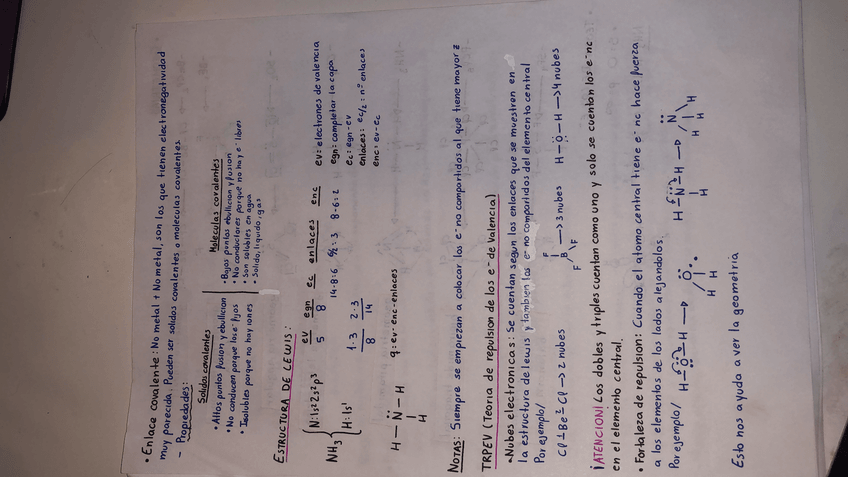 • Enlace covalente: No metal + No metal, son los que tienen electronegatividad
muy parecida. Pueden ser solidos covalentes o moleculas covalentes
- Propiedades:
Solidos covalentes
• Altos puntos fusion y ebullicion
• No conducen porque los e⁻ fijos
• Insolubles porque no hay iones
Moleculas covalentes
• Bajos puntos ebullicion y fusion
• No conductores porque no hay e⁻ libres
• Son solubles en agua
• Solido, liquido, gas
ESTRUCTURA DE LEWIS:
ev egn ec enlaces enc
NH₃ { N: 1s² 2s² p³ 5 8 14-8=6 6/2=3 8-6=2
H: 1s¹ 1·3 2·3
8 14
ev: electrones de valencia
egn: completar la capa
ec: egn-ev
enlaces: ec/2 = nº enlaces
enc: ev-ec
H – N – H
H
q: ev-enc-enlaces
NOTAS: Siempre se empiezan a colocar los e⁻ no compartidos al que tiene mayor z
TRPEV (Teoria de repulsion de los e⁻ de Valencia)
• Nubes electronicas: Se cuentan segun los enlaces que se muestren en
la estructura de lewis y tambien los e⁻ no compartidos del elemento central
Por ejemplo/
Cl 1 Be 2 Cl → 2 nubes
F F B F → 3 nubes
H – O – H → 4 nubes
¡ATENCION! Los dobles y triples cuentan como uno y solo se cuentan los e⁻ nc
en el elemento central.
• Fortaleza de repulsion: Cuando el atomo central tiene e⁻ nc hace fuerza
a los elementos de los lados alejandolos.
Por ejemplo/
H – O – H → O H H
H – N – H H → N H H H
Esto nos ayuda a ver la geometria